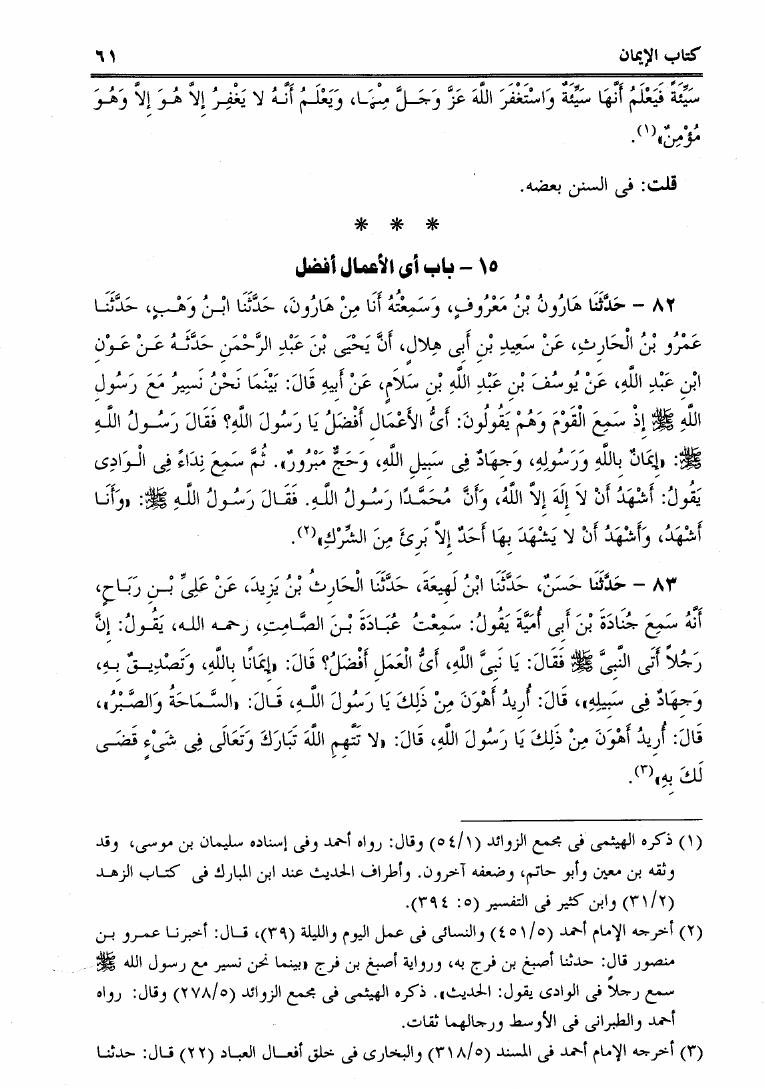 كتاب الإيمان ٦١
سَيِّئَةً فَيَعْلَمُ أَنَّهَا سَيِّئَةٌ وَاسْتَغْفَرَ اللَّهَ عَزَّ وَجَلَّ مِنْهَا، وَيَعْلَمُ أَنَّهُ لا يَغْفِرُ إِلاَّ هُوَ إِلاَّ وَهُوَ
مُؤْمِنٌ»(١).
قلت: فى السنن بعضه.
* * *
١٥ - باب أى الأعمال أفضل
٨٢ - حَدَّثَنَا هَارُونُ بْنُ مَعْرُوفٍ، وَسَمِعْتُهُ أَنَا مِنْ هَارُونَ، حَدَّثَنَا ابْنُ وَهْبٍ، حَدَّثَنَا
عَمْرُو بْنُ الْحَارِثِ، عَنْ سَعِيدِ بْنِ أَبِى هِلال، أَنَّ يَحْيَى بْنَ عَبْدِ الرَّحْمَنِ حَدَّثَهُ عَنْ عَوْنِ
ابْنِ عَبْدِ اللَّهِ، عَنْ يُوسُفَ بْنِ عَبْدِ اللَّهِ بْنِ سَلاَمٍ، عَنْ أَبِيهِ قَالَ: بَيْنَمَا نَحْنُ نَسِيرُ مَعَ رَسُولِ
اللَّهِ ﷺ إِذْ سَمِعَ الْقَوْمَ وَهُمْ يَقُولُونَ: أَىُّ الأَعْمَالِ أَفْضَلُ يَا رَسُولَ اللَّهِ؟ فَقَالَ رَسُولُ اللَّهِ
ﷺ: «إِيمَانٌ بِاللَّهِ وَرَسُولِهِ، وَجِهَادٌ فِى سَبِيلِ اللَّهِ، وَحَجٌّ مَبْرُورٌ». ثُمَّ سَمِعَ نِدَاءً فِى الْوَادِى
يَقُولُ: أَشْهَدُ أَنْ لاَ إِلَهَ إِلاَّ اللَّهُ، وَأَنَّ مُحَمَّدًا رَسُولُ اللَّهِ. فَقَالَ رَسُولُ اللَّهِ ﷺ: «وَأَنَا
أَشْهَدُ، وَأَشْهَدُ أَنْ لا يَشْهَدَ بِهَا أَحَدٌ إِلاَّ بَرِئَ مِنَ الشِّرْكِ»(٢).
٨٣ - حَدَّثَنَا حَسَنٌ، حَدَّثَنَا ابْنُ لَهِيعَةَ، حَدَّثَنَا الْحَارِثُ بْنُ يَزِيدَ، عَنْ عَلِىِّ بْنِ رَبَاحٍ،
أَنَّهُ سَمِعَ جُنَادَةَ بْنَ أَبِى أُمَيَّةَ يَقُولُ: سَمِعْتُ عُبَادَةَ بْنَ الصَّامِتِ، رحمه الله، يَقُولُ: إِنَّ
رَجُلاً أَتَى النَّبِىَّ ﷺ فَقَالَ: يَا نَبِىَّ اللَّهِ، أَىُّ الْعَمَلِ أَفْضَلُ؟ قَالَ: «إِيمَانًا بِاللَّهِ، وَتَصْدِيقٌ بِهِ،
وَجِهَادٌ فِى سَبِيلِهِ»، قَالَ: أُرِيدُ أَهْوَنَ مِنْ ذَلِكَ يَا رَسُولَ اللَّهِ، قَالَ: «السَّمَاحَةُ وَالصَّبْرُ»،
قَالَ: أُرِيدُ أَهْوَنَ مِنْ ذَلِكَ يَا رَسُولَ اللَّهِ، قَالَ: «لا تَتَّهِمِ اللَّهَ تَبَارَكَ وَتَعَالَى فِى شَىْءٍ قَضَى
لَكَ بِهِ»(٣).
(١) ذكره الهيثمى فى مجمع الزوائد (٥٤/١) وقال: رواه أحمد وفى إسناده سليمان بن موسى، وقد
وثقه بن معين وأبو حاتم، وضعفه آخرون. وأطراف الحديث عند ابن المبارك فى كتاب الزهد
(٣١/٢) وابن كثير فى التفسير (٥: ٣٩٤).
(٢) أخرجه الإمام أحمد (٤٥١/٥) والنسائى فى عمل اليوم والليلة (٣٩)، قال: أخبرنا عمرو بن
منصور قال: حدثنا أصبغ بن فرج به، ورواية أصبغ بن فرج «بينما نحن نسير مع رسول الله ﷺ
سمع رجلاً فى الوادى يقول: الحديث». ذكره الهيثمى فى مجمع الزوائد (٢٧٨/٥) وقال: رواه
أحمد والطبرانى فى الأوسط ورجالهما ثقات.
(٣) أخرجه الإمام أحمد فى المسند (٣١٨/٥) والبخارى فى خلق أفعال العباد (٢٢) قال: حدثنا